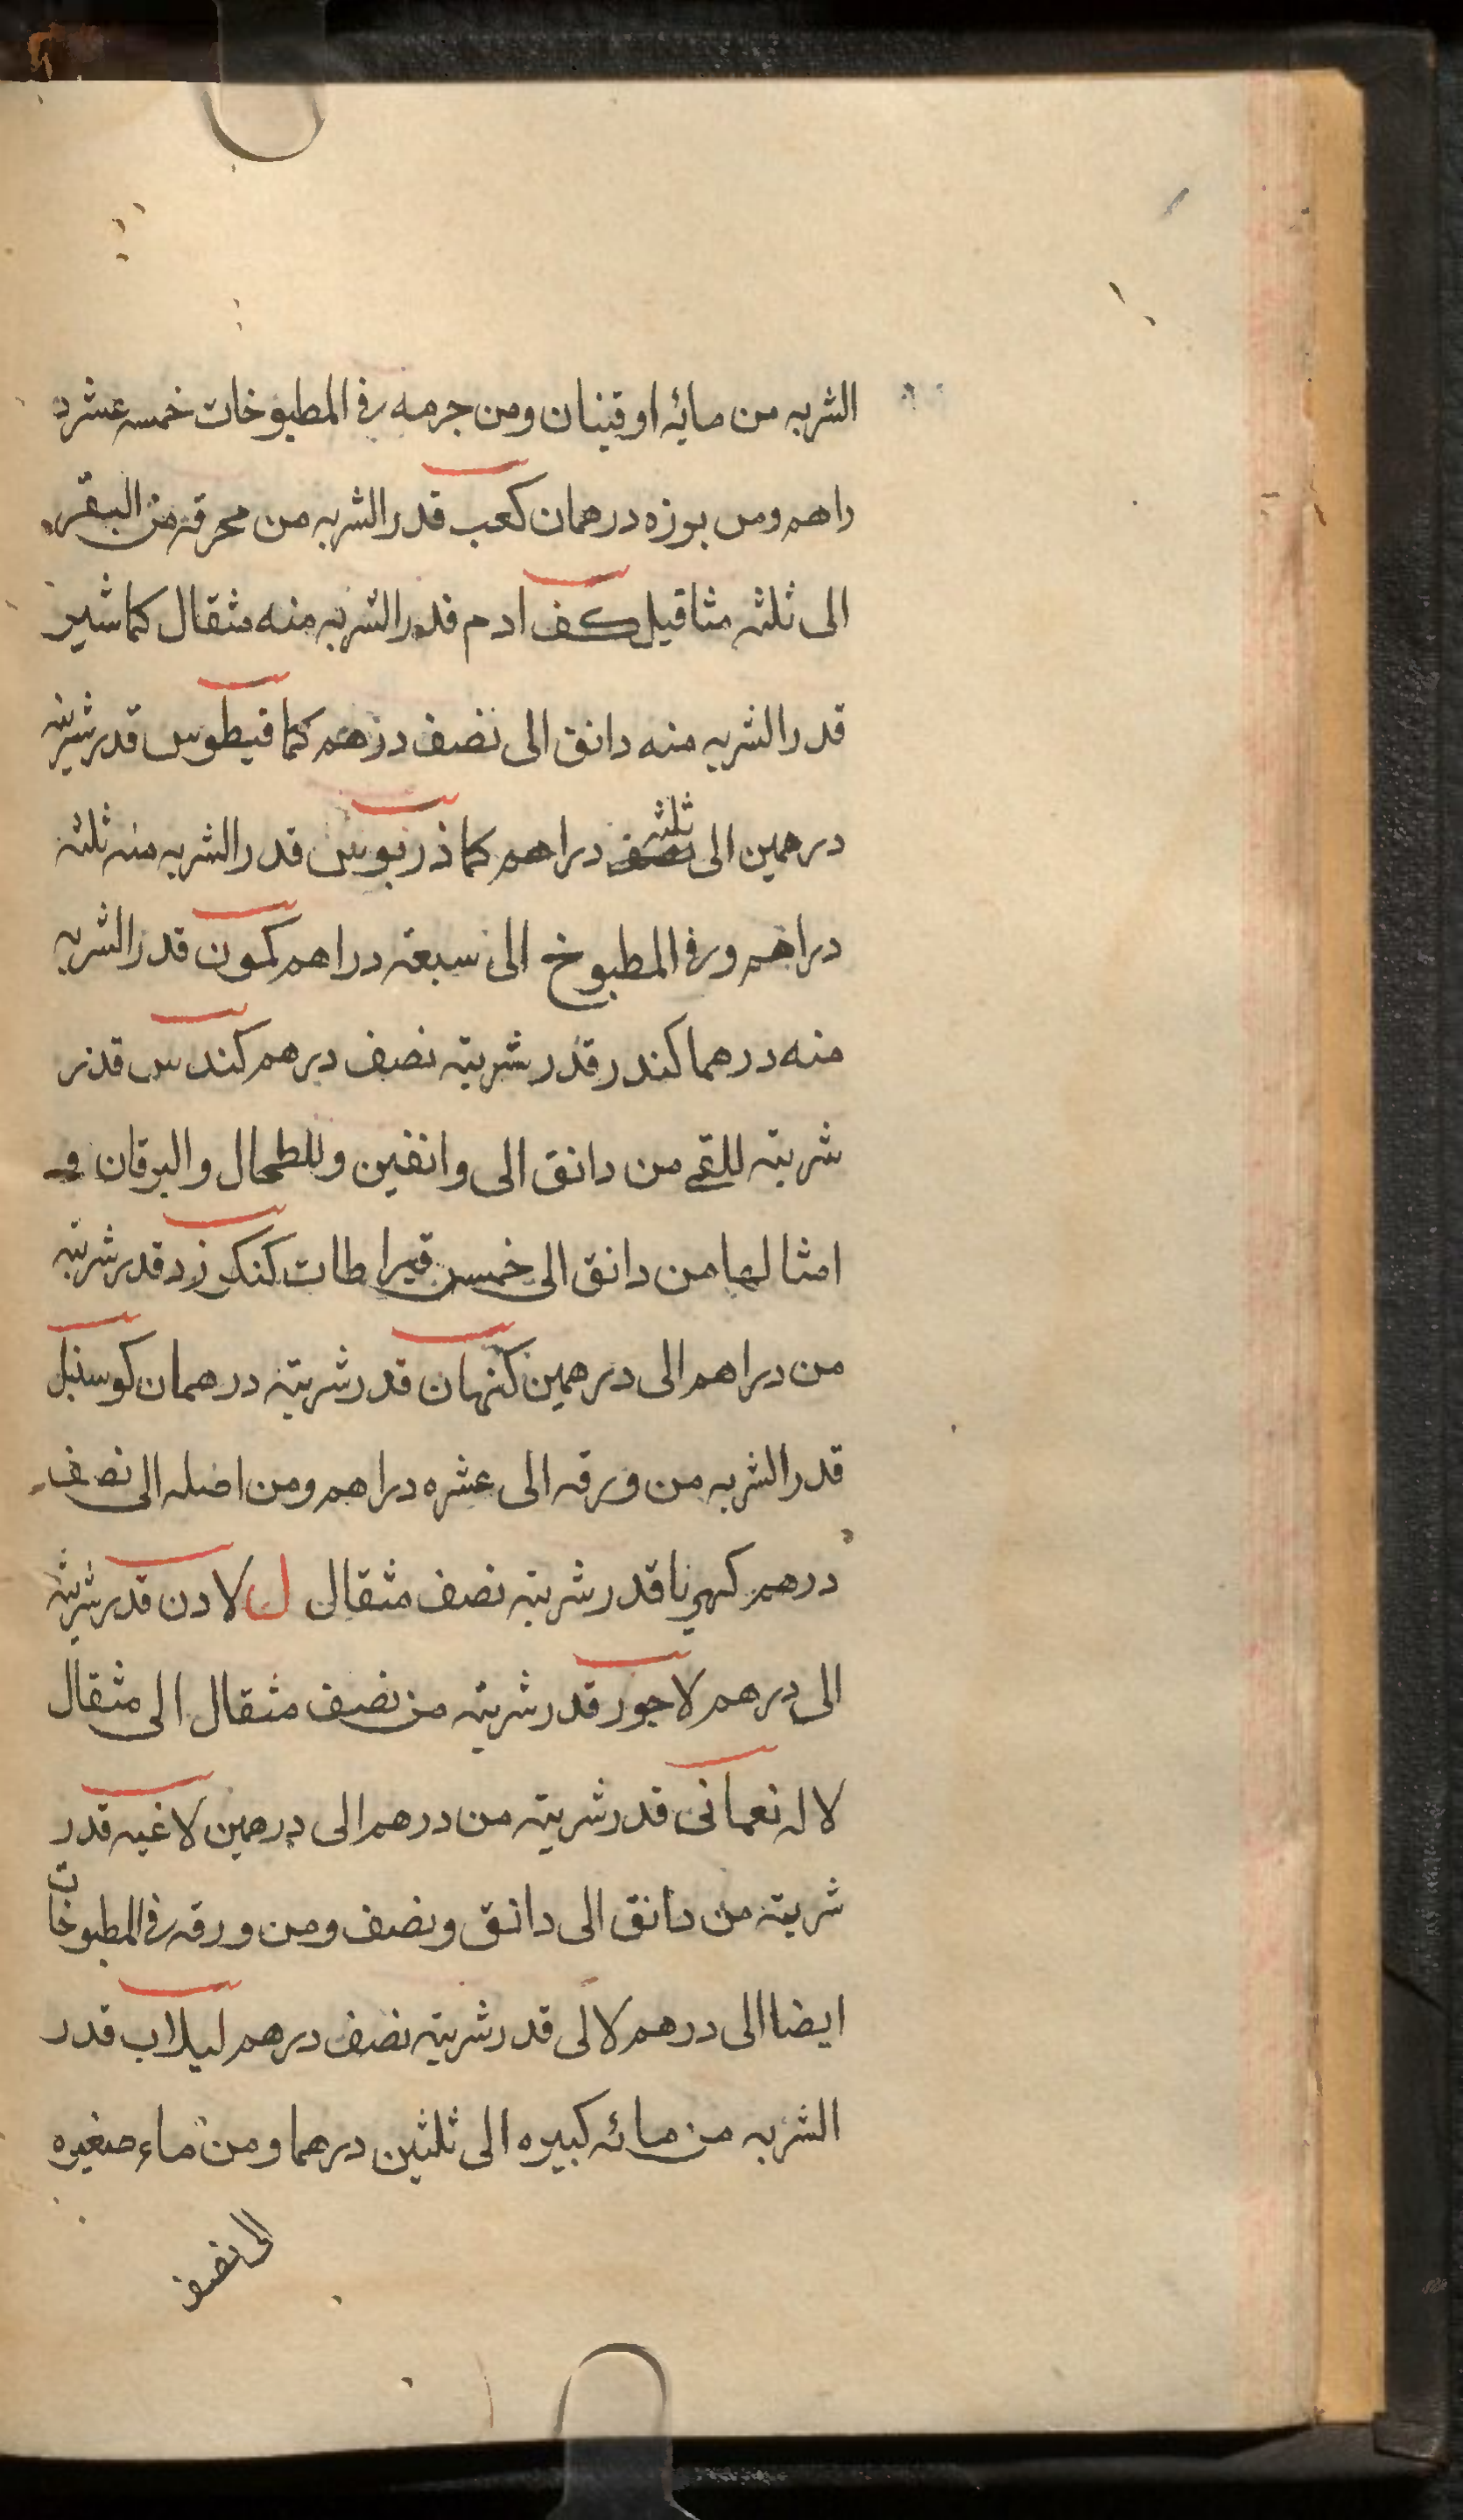 الشربه من مائه اوقيتان ومن جرمه في المطبوخات خمسه عشر د
راهم ومن بوزه درهمان كعب قدر الشربه من محرقه من البقر
الى ثلثه مثاقيل كف ادم قدر الشربه منه مثقال كماشير
قدر الشربه منه دانق الى نصف درهم كمافيطوس قدر شربته
درهمين الى ثلثه دراهم كماذريوس قدر الشربه منه ثلثه
دراهم وفي المطبوخ الى سبعه دراهم كمون قدر الشربه
منه درهما كندر قدر شربته نصف درهم كندس قدر
شربته للقے من دانق الى وانقين وللطحال واليرقان و
امثالها من دانق الى خمس قيراطات كنكرزد قدر شربته
من دراهم الى درهمين كنهان قدر شربته درهمان كوسنبل
قدر الشربه من ورقه الى عشره دراهم ومن اصله الى نصف
درهم كهربا قدر شربته نصف مثقال ل لادن قدر شربته
الى درهم لاجور قدر شربته من نصف مثقال الى مثقال
لاله نعمانى قدر شربته من درهم الى درهمين لاغيه قدر
شربته من دانق الى دانق ونصف ومن ورقه في المطبوخات
ايضا الى درهم لالى قدر شربته نصف درهم لبلاب قدر
الشربه من مائه كبيره الى ثلثين درهما ومن ماء صغيره
الى نصف